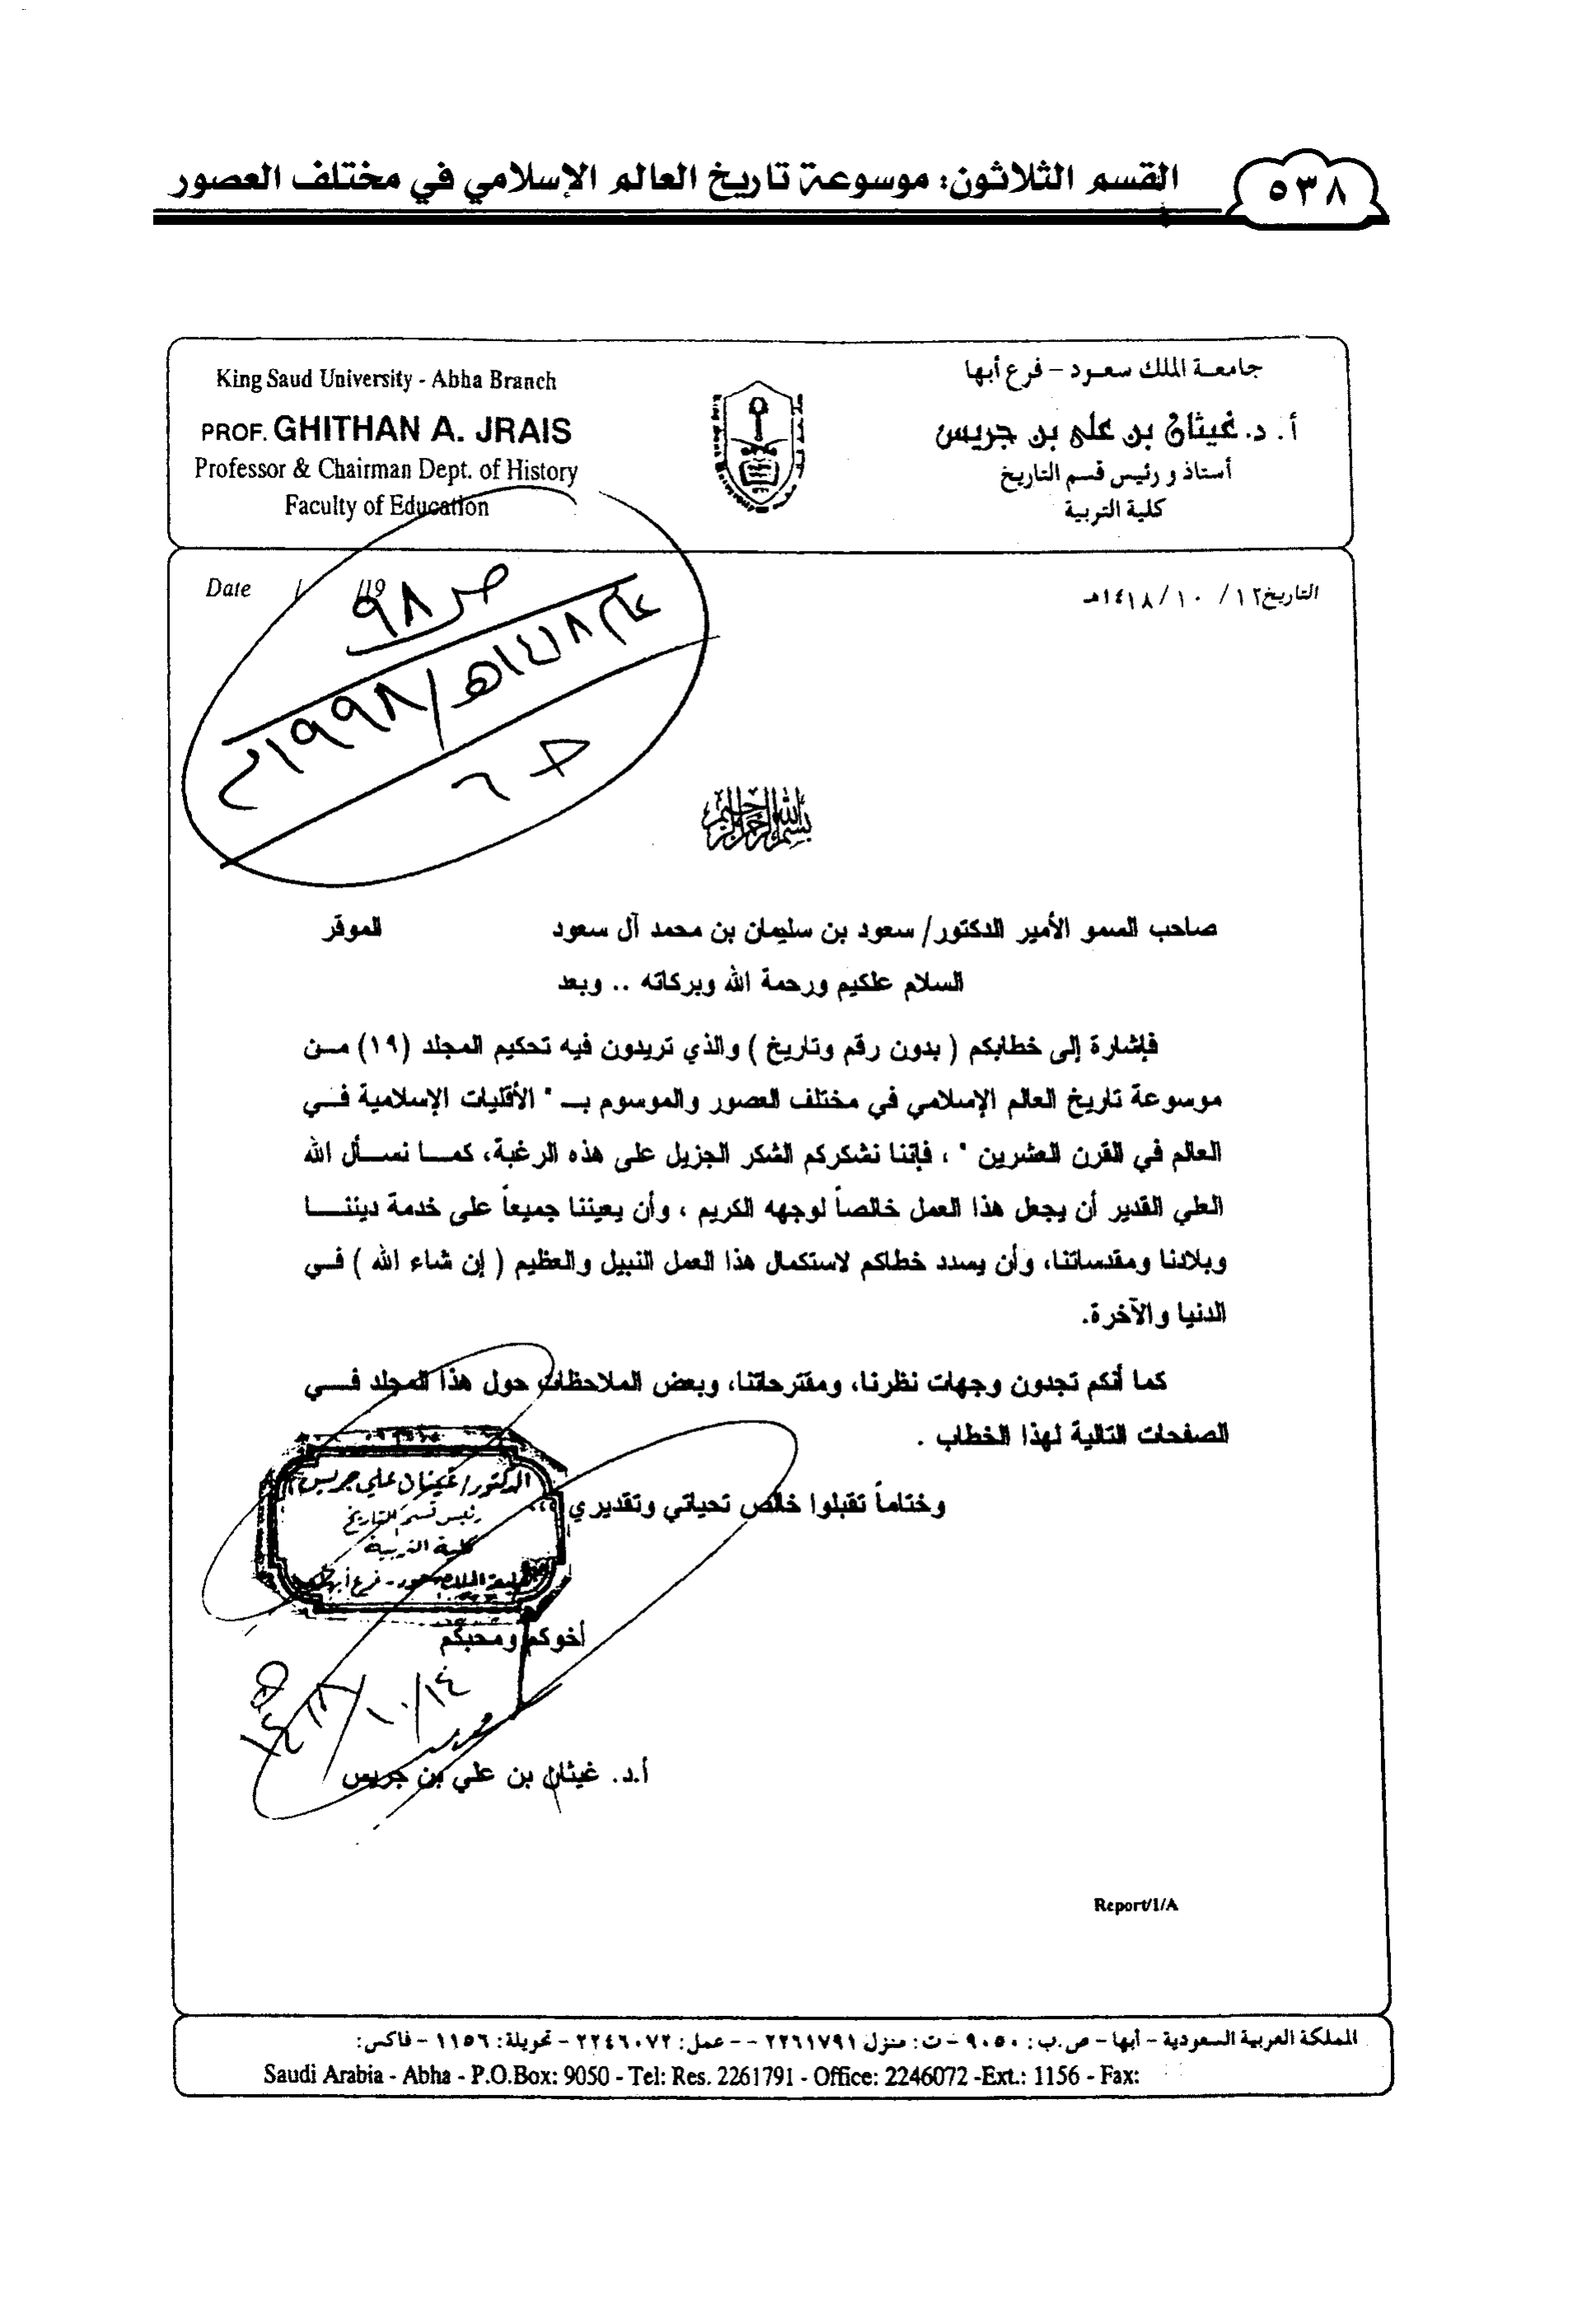 ٥٣٨
القسم الثلاثون: موسوعة تاريخ العالم الإسلامي في مختلف العصور
King Saud University - Abha Branch
PROF. GHITHAN A. JRAIS
Professor & Chairman Dept. of History
Faculty of Education
جامعة الملك سعود - فرع أبها
أ. د. غيثان بن علي بن جريس
أستاذ و رئيس قسم التاريخ
كلية التربية
Date / /19
التاريخ ١٢/ ١٠ /١٤١٨هـ
ص ٩٨
١٤١٨هـ/١٩٩٨م
بسم الله الرحمن الرحيم
صاحب السمو الأمير الدكتور/ سعود بن سليمان بن محمد آل سعود الموقر
السلام علكيم ورحمة الله وبركاته .. وبعد
فإشارة إلى خطابكم ( بدون رقم وتاريخ ) والذي تريدون فيه تحكيم المجلد (١٩) من
موسوعة تاريخ العالم الإسلامي في مختلف العصور والموسوم بـ " الأقليات الإسلامية في
العالم في القرن العشرين " ، فإننا نشكركم الشكر الجزيل على هذه الرغبة، كما نسأل الله
العلي القدير أن يجعل هذا العمل خالصاً لوجهه الكريم ، وأن يعيننا جميعاً على خدمة ديننا
وبلادنا ومقدساتنا، وأن يسدد خطاكم لاستكمال هذا العمل النبيل والعظيم ( إن شاء الله ) في
الدنيا والآخرة.
كما أنكم تجدون وجهات نظرنا، ومقترحاتنا، وبعض الملاحظات حول هذا المجلد في
الصفحات التالية لهذا الخطاب .
وختاماً تقبلوا خالص تحياتي وتقديري ،،،
الدكتور/ غيثان علي جريس
رئيس قسم التاريخ
كلية التربية
جامعة الملك سعود - فرع أبها
أخوكم ومحبكم
١٤/١٠/١٤١٨هـ
أ.د. غيثان بن علي بن جريس
Report/1/A
المملكة العربية السعودية - أبها - ص.ب: ٩٠٥٠ - ت: منزل ٢٢٦١٧٩١ -- عمل: ٢٢٤٦٠٧٢ - تحويلة: ١١٥٦ - فاكس:
Saudi Arabia - Abha - P.O.Box: 9050 - Tel: Res. 2261791 - Office: 2246072 -Ext.: 1156 - Fax: